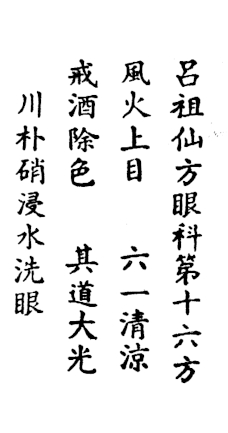 呂祖仙方眼科第十六方
風火上目　六一清涼
戒酒除色　其道大光
川朴硝浸水洗眼